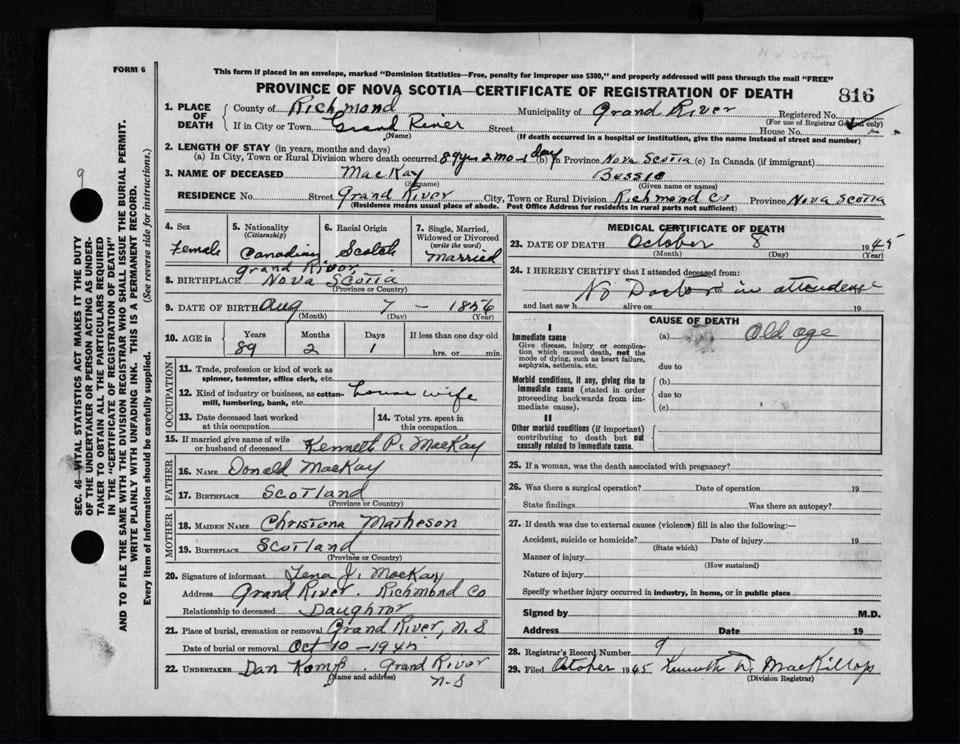 FORM 6
This form if placed in an envelope, marked "Dominion Statistics—Free, penalty for improper use $300," and properly addressed will pass through the mail "FREE"
PROVINCE OF NOVA SCOTIA—CERTIFICATE OF REGISTRATION OF DEATH
816
1. PLACE OF DEATH
County of Richmond Municipality of Grand River Registered No.
(For use of Registrar General only)
If in City or Town Grand River Street House No.
(Name) (If death occurred in a hospital or institution, give the name instead of street and number)
2. LENGTH OF STAY (in years, months and days)
(a) In City, Town or Rural Division where death occurred 89 yrs 2 mo - 1 day (b) in Province Nova Scotia (c) In Canada (if immigrant)
3. NAME OF DECEASED MacKay Bessie
(Surname) (Given name or names)
RESIDENCE No. Street Grand River City, Town or Rural Division Richmond Co Province Nova Scotia
(Residence means usual place of abode. Post Office Address for residents in rural parts not sufficient)
4. Sex
Female
5. Nationality (Citizenship)
Canadian
6. Racial Origin
Scotch
7. Single, Married, Widowed or Divorced (write the word)
Married
Grand River
8. BIRTHPLACE Nova Scotia
(Province or Country)
9. DATE OF BIRTH Aug 7 — 1856
(Month) (Day) (Year)
10. AGE in
Years Months Days If less than one day old
89 2 1 hrs. or min.
OCCUPATION
11. Trade, profession or kind of work as spinner, teamster, office clerk, etc.
12. Kind of industry or business, as cotton-mill, lumbering, bank, etc. house wife
13. Date deceased last worked at this occupation
14. Total yrs. spent in this occupation
15. If married give name of wife or husband of deceased Kenneth P. MacKay
FATHER
16. NAME Donald MacKay
17. BIRTHPLACE Scotland
(Province or Country)
MOTHER
18. MAIDEN NAME Christena Matheson
19. BIRTHPLACE Scotland
(Province or Country)
20. Signature of informant Tena J. MacKay
Address Grand River. Richmond Co
Relationship to deceased Daughter
21. Place of burial, cremation or removal Grand River, N.S
Date of burial or removal Oct 10 - 1945
22. UNDERTAKER Dan Kemp. Grand River
(Name and address)
N-S
MEDICAL CERTIFICATE OF DEATH
23. DATE OF DEATH October 8 1945
(Month) (Day) (Year)
24. I HEREBY CERTIFY that I attended deceased from:
No Doctor in attendense
and last saw h alive on 19
CAUSE OF DEATH
I
Immediate cause
Give disease, injury or complication which caused death, not the mode of dying, such as heart failure, asphyxia, asthenia, etc.
(a) Old age
due to
Morbid conditions, if any, giving rise to immediate cause (stated in order proceeding backwards from immediate cause).
(b)
due to
(c)
II
Other morbid conditions (if important) contributing to death but not causally related to immediate cause.
25. If a woman, was the death associated with pregnancy?
26. Was there a surgical operation? Date of operation 19
State findings Was there an autopsy?
27. If death was due to external causes (violence) fill in also the following:—
Accident, suicide or homicide? Date of injury 19
(State which)
Manner of injury
(How sustained)
Nature of injury
Specify whether injury occurred in industry, in home, or in public place
Signed by M.D.
Address Date 19
28. Registrar's Record Number 9
29. Filed October 1945 Kenneth D. MacKillop
(Division Registrar)
9
SEC. 46—VITAL STATISTICS ACT MAKES IT THE DUTY
OF THE UNDERTAKER OR PERSON ACTING AS UNDER-
TAKER TO OBTAIN ALL THE PARTICULARS REQUIRED
IN THE "CERTIFICATE OF REGISTRATION OF DEATH"
AND TO FILE THE SAME WITH THE DIVISION REGISTRAR WHO SHALL ISSUE THE BURIAL PERMIT.
WRITE PLAINLY WITH UNFADING INK. THIS IS A PERMANENT RECORD.
Every item of information should be carefully supplied. (See reverse side for instructions.)